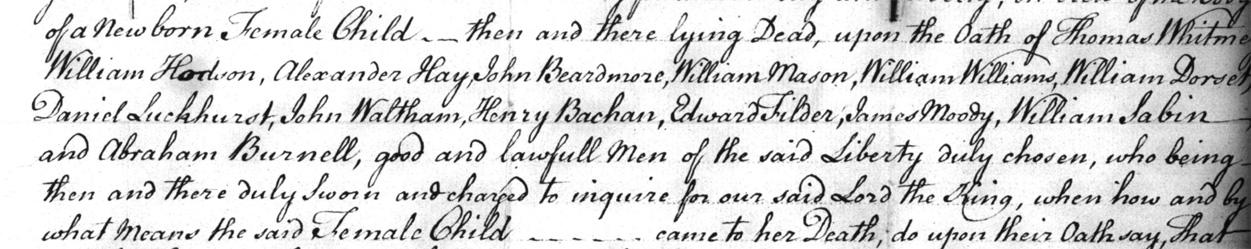 of a New born Female Child -- then and there lying Dead, upon the Oath of Thomas
William Hodson, Alexander Hay, John Beardmore, William Mason, William Williams, William
Daniel Luckhurst, John Waltham, Henry Bachan, Edward Filder, James Moody, William Sabin
and Abraham Burnell, good and lawfull Men of the said Liberty duly chosen, who being
then and there duly Sworn and charged to inquire for our said Lord the King, when how and by
what Means the said Female Child ------ came to her Death, do upon their Oath say, That